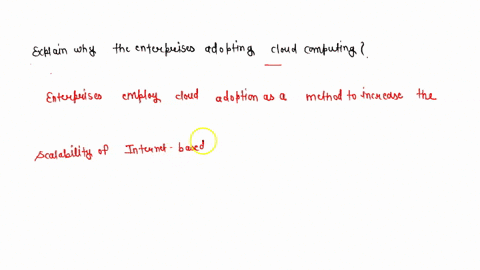 Explain why the enterprises adopting cloud computing?
Enterprises employ cloud adoption as a method to increase the
scalability of Internet-based